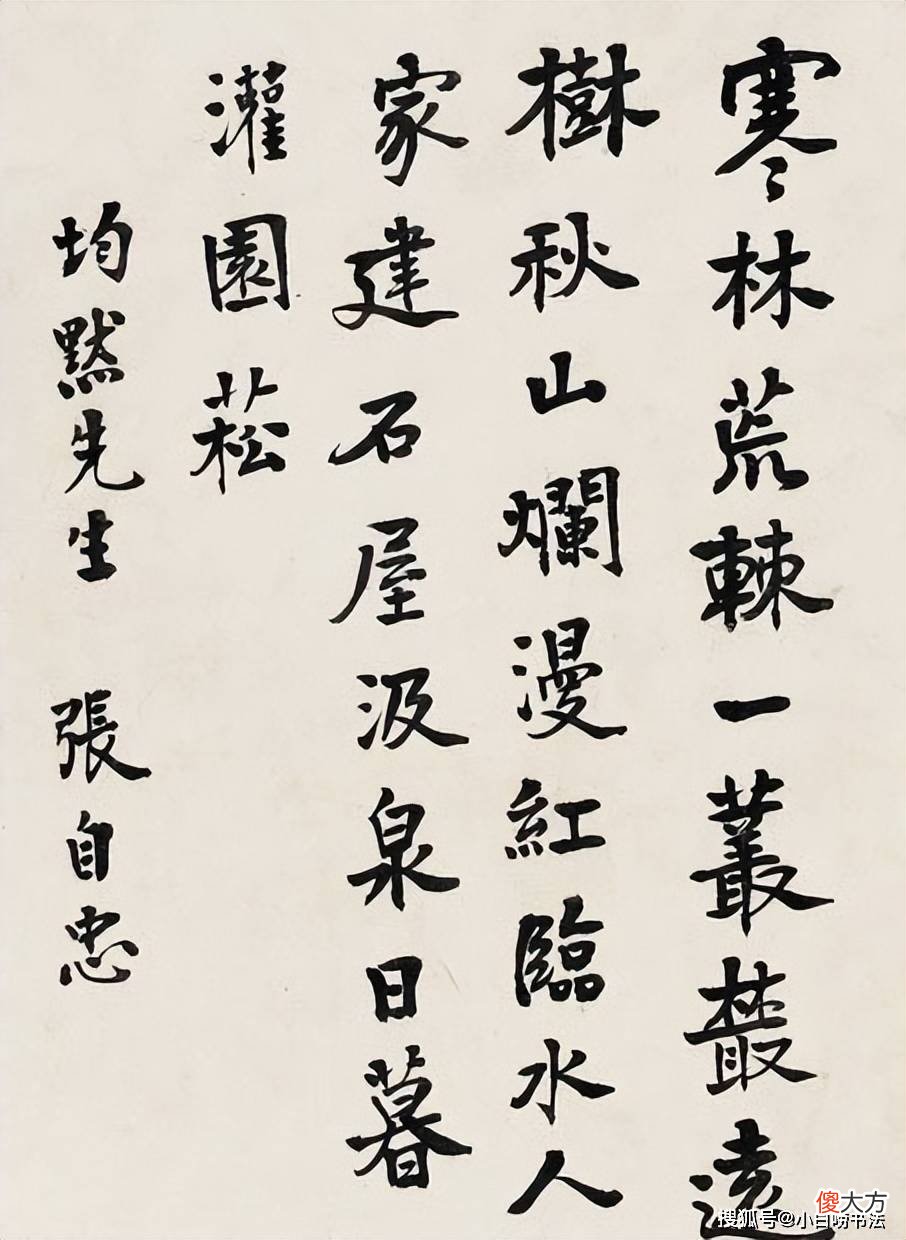 寒林荒棘一叢叢遠
樹秋山爛漫紅臨水人
家建石屋汲泉日暮
灌園菘
均默先生 張自忠
傻大方
搜狐号@小白唠书法